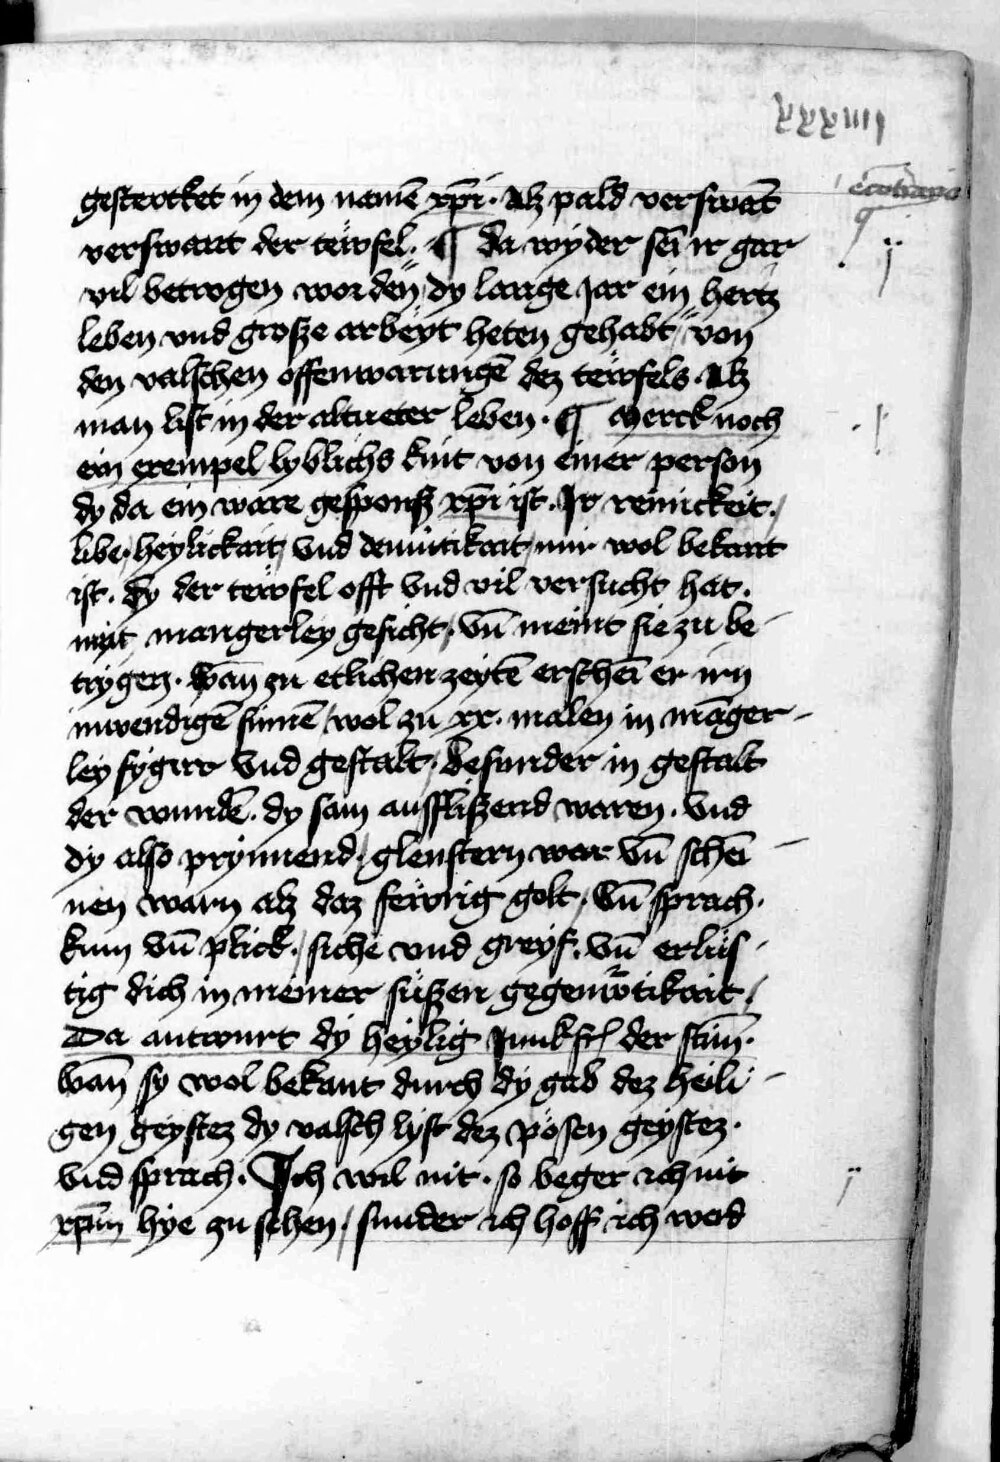 xxxiiij
gestercket in dem namē xp̄i. Alz pald verswāt
verswant der tewfel. ¶ Da wyder sei ir gar
vil betrogen worden, dy lange Jar ein hertz
leben vnd grosze arbeyt heten gehabt, von
den valschen offenwarungē dez tewfels. Alz
man list in der altueter leben. ¶ Merck noch
ein exempel lyblichs kint von einer person
dy da ein ware gesponsz xp̄i ist. Ir reinickeit,
libe, heylickait, vnd demutikait, mir wol bekant
ist. dy der tewfel offt vnd vil versucht hat.
myt mangerley gesicht, vn̄ meint sie zu be
trygen. wan̄ zu etlichen zeytē erschei er irn
inwendigē sinnē, wol zu xx. malen in māger
ley fygur vnd gestalt, besunder in gestalt
der wundē. dy sam ausflissend waren. vnd
dy also prynnend, glenstern war vn̄ schei
nen warn alz daz fewrig golt, vn̄ sprach.
kum vn̄ plick, siche vnd greyf. vn̄ erlus
tig dich in meiner süszen gegenwr̄tikait,
Da antwurt dy heylig Junkfr̄ der stim̄.
wan̄ sy wol bekant durch dy gab dez heili
gen geystez dy valsch lyst dez pösen geystez.
vnd sprach. Ich wil nit. so beger ich nit
xp̄um hye zu sehen, sunder ich hoff ich werd